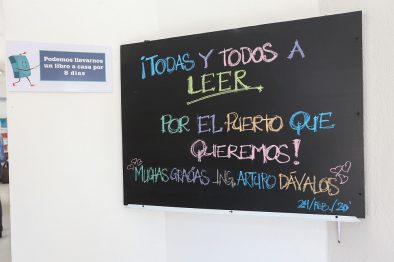 Podemos llevarnos
un libro a casa por
8 días
¡TODAS Y TODOS A
LEER.
POR EL PUERTO QUE
QUEREMOS!
MUCHAS GRACIAS ING. ARTURO DÁVALOS
24/FEB/20'